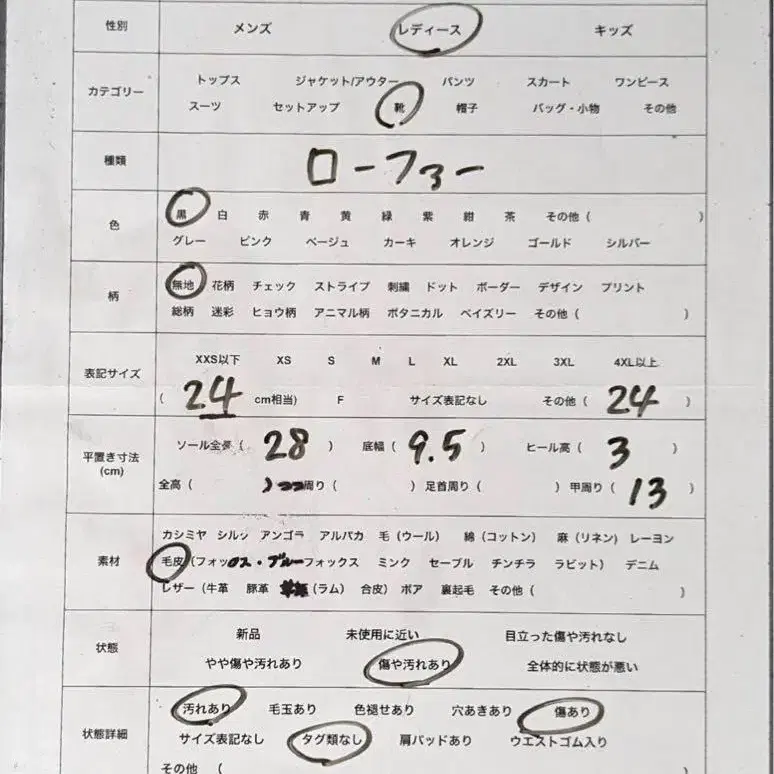 性別 メンズ レディース キッズ
カテゴリー トップス ジャケット/アウター パンツ スカート ワンピース
スーツ セットアップ 靴 帽子 バッグ・小物 その他
種類 ローファー
色 黒 白 赤 青 黄 緑 紫 紺 茶 その他 ( )
グレー ピンク ベージュ カーキ オレンジ ゴールド シルバー
柄 無地 花柄 チェック ストライプ 刺繍 ドット ボーダー デザイン プリント
総柄 迷彩 ヒョウ柄 アニマル柄 ボタニカル ペイズリー その他 ( )
表記サイズ XXS以下 XS S M L XL 2XL 3XL 4XL以上
( 24 cm相当) F サイズ表記なし その他 ( 24 )
平置き寸法 (cm) ソール全長 ( 28 ) 底幅 ( 9.5 ) ヒール高 ( 3 )
全高 ( ) 周り ( ) 足首周り ( ) 甲周り ( 13 )
カシミヤ シルク アンゴラ アルパカ 毛 (ウール) 綿 (コットン) 麻 (リネン) レーヨン
素材 毛皮 (フォックス・ブルーフォックス ミンク セーブル チンチラ ラビット) デニム
レザー (牛革 豚革 (ラム) 合皮) ボア 裏起毛 その他 ( )
状態 新品 未使用に近い 目立った傷や汚れなし
やや傷や汚れあり 傷や汚れあり 全体的に状態が悪い
状態詳細 汚れあり 毛玉あり 色褪せあり 穴あきあり 傷あり
サイズ表記なし タグ類なし 肩パッドあり ウエストゴム入り
その他 (